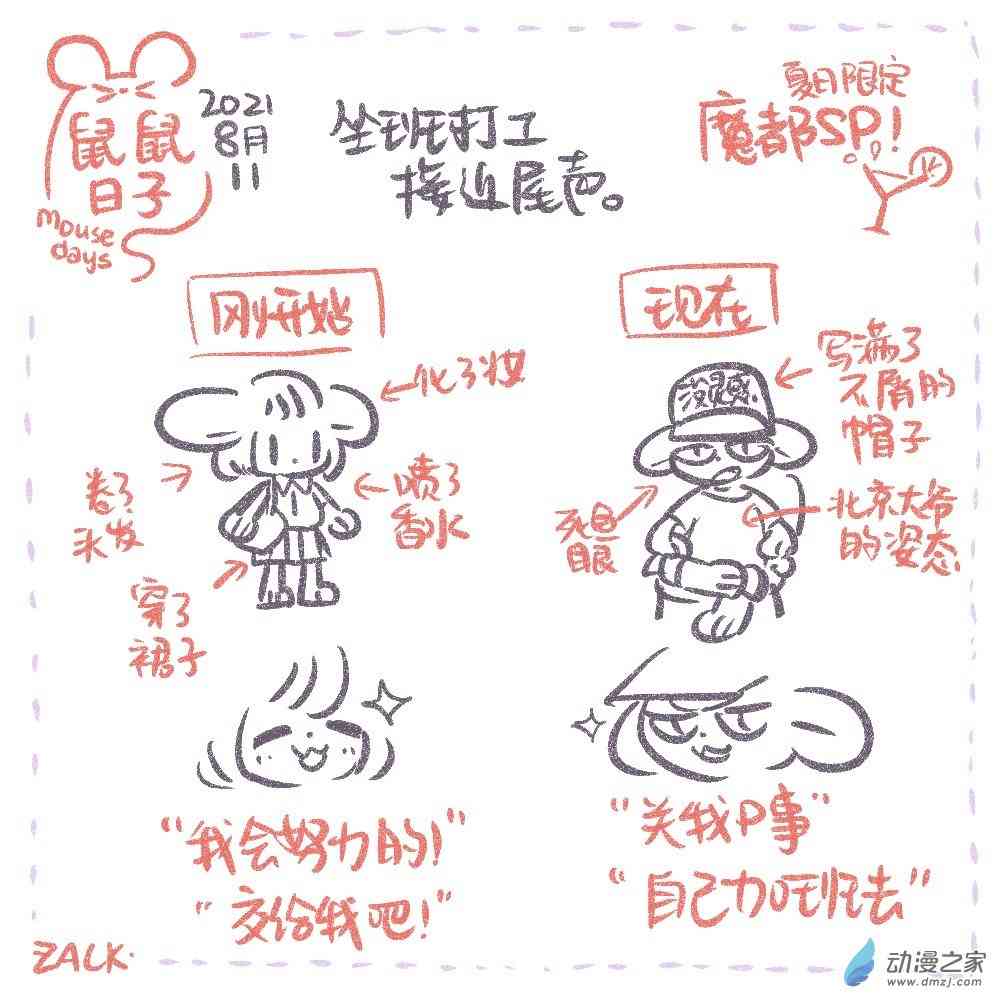 鼠鼠
日子
mouse
days
2021
8月
11
坐班打工
接近尾声。
夏日限定
魔都SP!
刚开始
化了妆
卷了
头发
喷了
香水
穿了
裙子
"我会努力的!"
"交给我吧!"
现在
写满了
不屑的
帽子
没灵感
死鱼
眼
北京大爷
的姿态
"关我P事"
"自己加班去"
ZALK.
动漫之家
www.dmzj.com